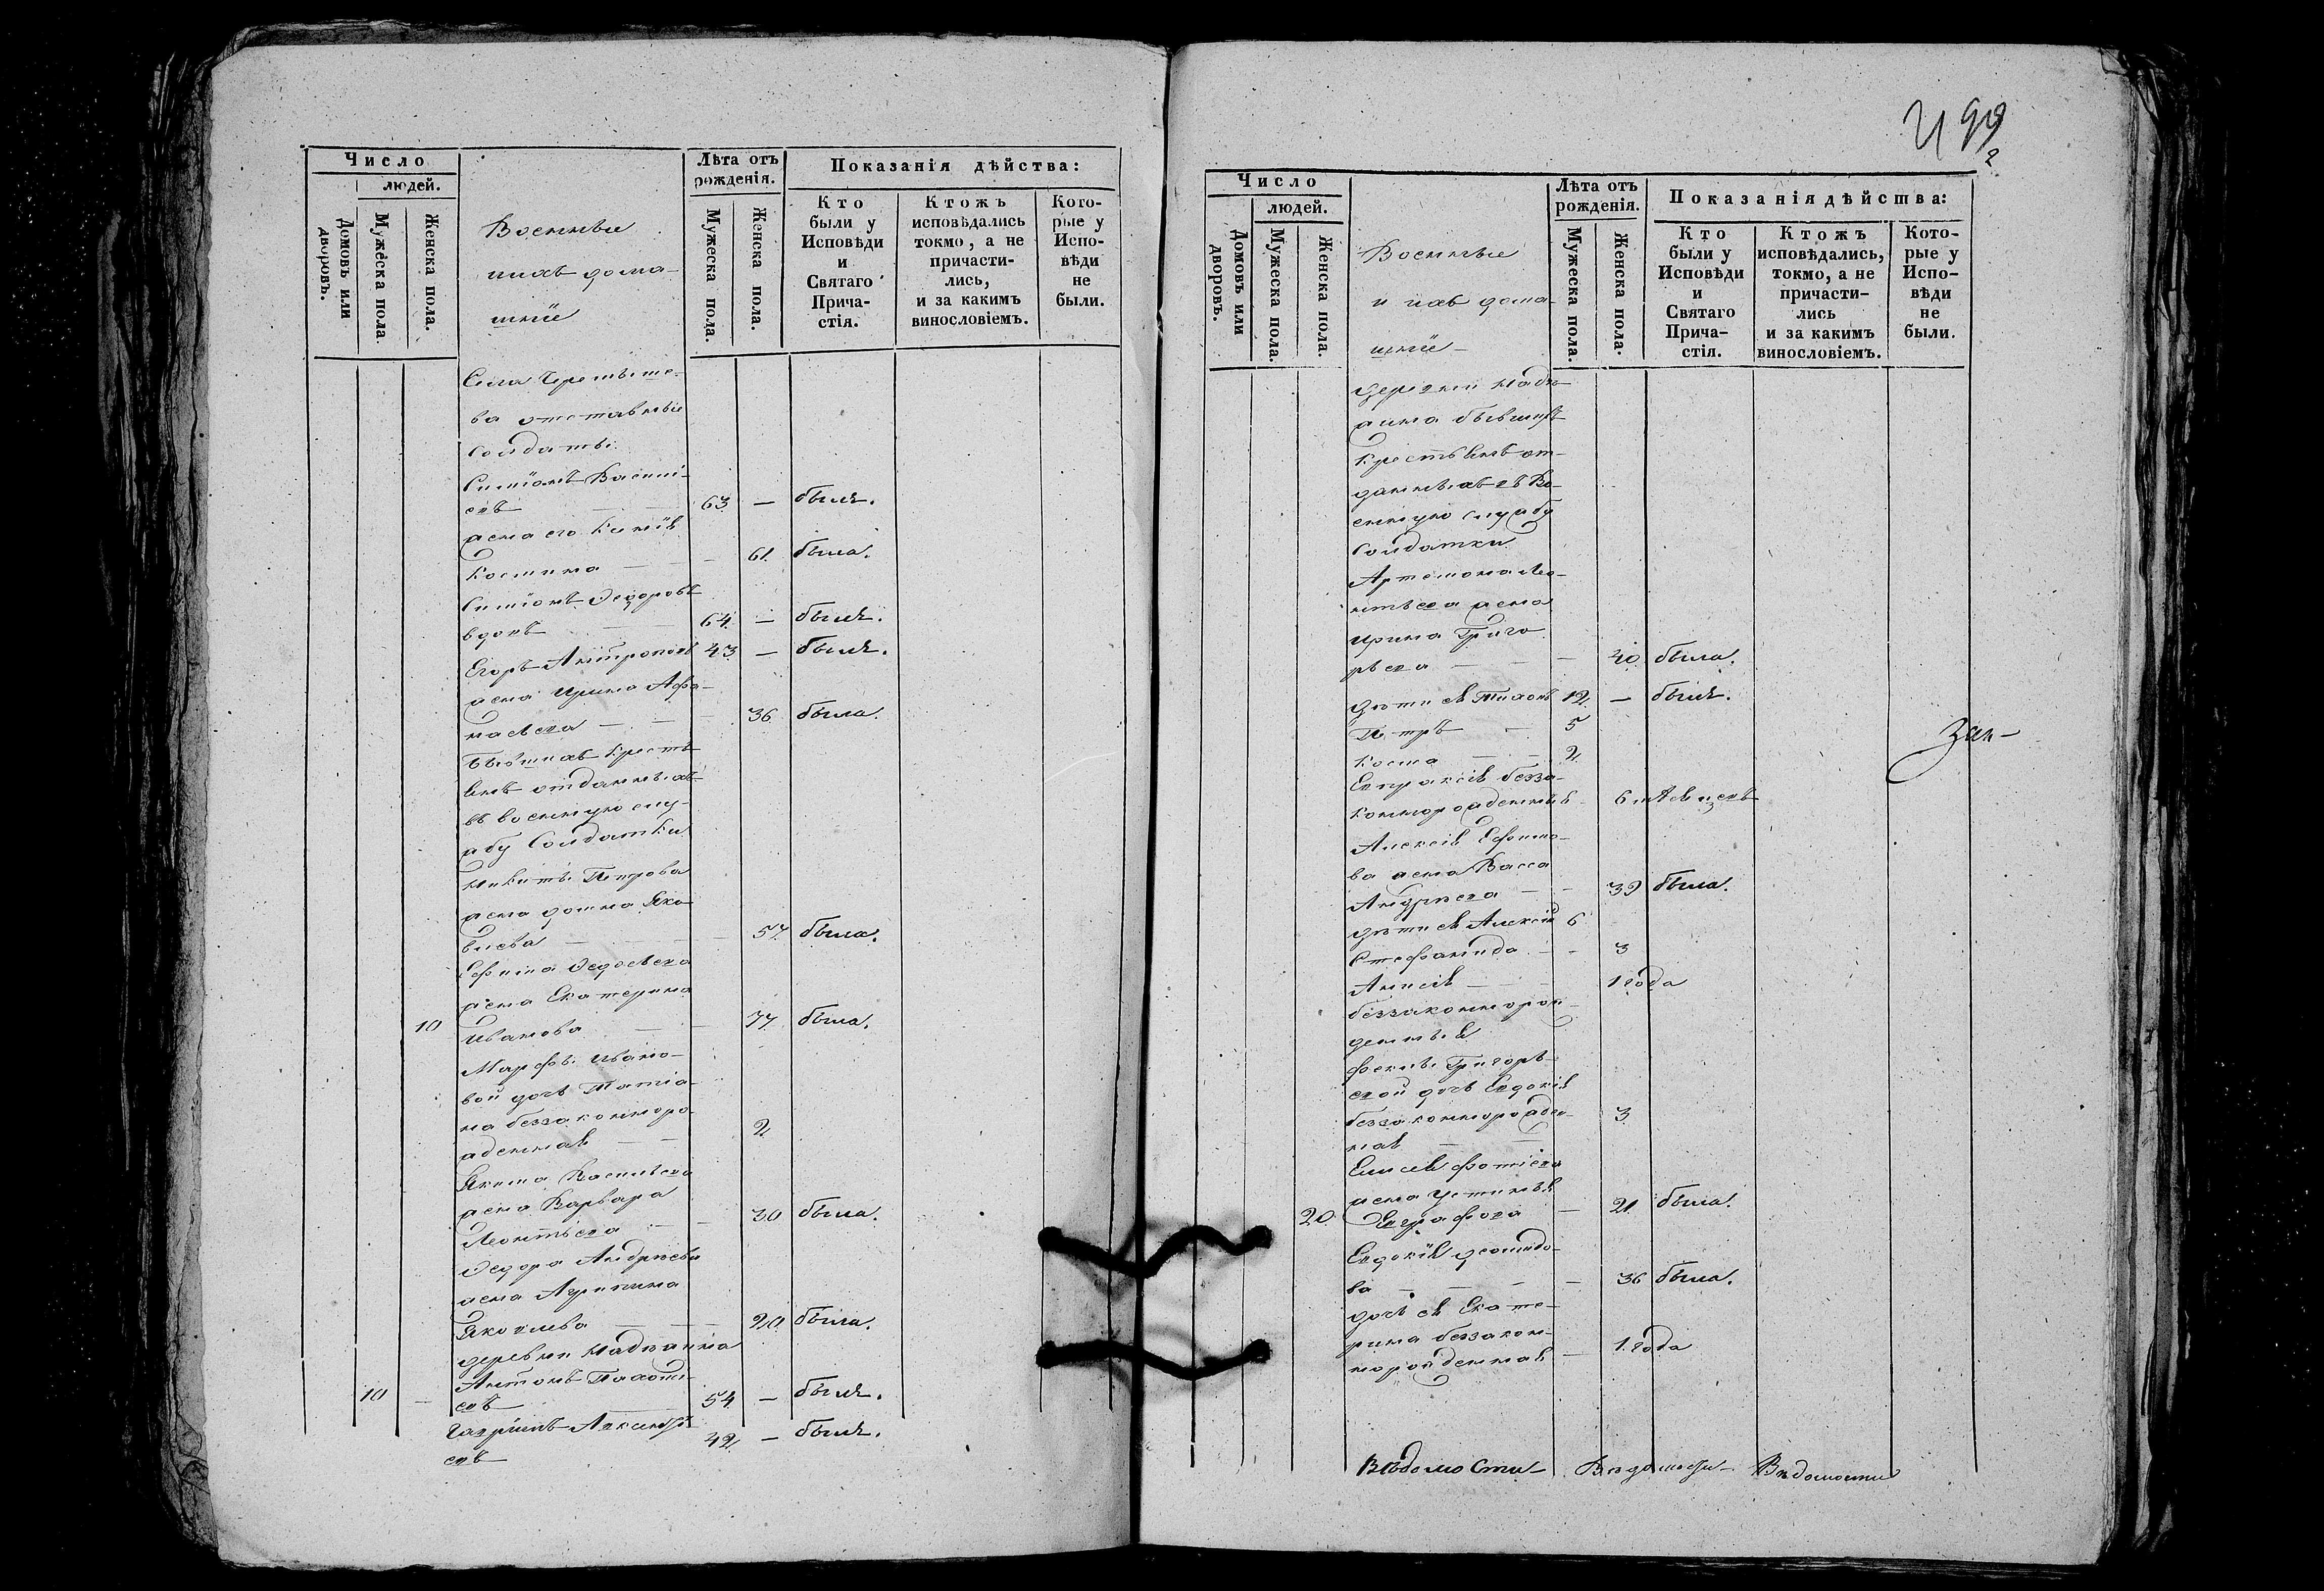 Число
людей.
Домовъ или дворовъ.
Мужеска пола
Женска пола.
Военные
ихъ дома-
шніе
Лѣта отъ
рожденія.
Мужеска пола.
Женска пола.
Показанія дѣйства:
Кто
были у
Исповѣди
и
Святаго
Прича-
стія.
Ктожъ
исповѣдались
токмо, а не
причасти-
лись,
и за какимъ
винословіемъ.
Кото-
рые у
Испо-
вѣди
не
были.
Села
ва отставные
Солдаты.
Симіонъ Василі-
евъ — 63 — былъ.
жена его Ксенія
Костина — 61. была.
Симіонъ Ѳедоровъ
вдовъ — 64. — былъ.
Егоръ Антроповъ 43 — былъ.
жена Ирина Афо-
насьева — 36 была.
Бывшихъ кресть
янъ отданныхъ
въ военную слу-
жбу Солдатки
Никиты Петрова
жена Домна Яко-
влева — 57. была.
Ефима Ѳедосѣева
жена Екатерина
10 Иванова — 77 была.
Марфы Ивано-
вой дочь Татіа-
на беззаконноро-
жденная — 2
Якима Васильева
жена Варвара
Леонтьева — 30 была.
Ѳедора Андрѣева
жена Агрипина
Яковлева — 20 была.
деревни
Антонъ
10 — евъ — 54. — былъ.
Гаврилъ
евъ 42. — былъ.
499
Число
людей.
Домовъ или дворовъ.
Мужеска пола.
Женска пола.
Военные
и ихъ дома-
шніе —
Лѣта отъ
рожденія.
Мужеска пола.
Женска пола.
Показанія дѣйства:
Кто
были у
Исповѣди
и
Святаго
Прича-
стія.
Ктожъ
исповѣдались,
токмо, а не
причасти-
лись
и за какимъ
винословіемъ.
Кото-
рые у
Испо-
вѣди
не
были.
деревни
бывшихъ
крестьянъ от-
данныхъ въ Во-
енную службу
Солдатки
Артемона Лео-
нтьева жена
Ирина Григо
рьева — 40. была.
дѣти ея Тихонъ 12. — былъ.
Петръ — 5
Косма — 2.
Евпраксія безза-
коннорожденная 6 мѣсяцевъ
Алексія Ефимо-
ва жена Васса
Андрѣева — 39 была.
дѣти ея Алексій 6
Стефанида — 3
Анисія — 1 года
беззаконнорож-
денныя
Феклы Григорь-
евой дочь Евдокія
беззаконнорожден- 3
ная —
Елисея Фотіева
жена Устинья
20. Евграфова — 21. была.
Евдокія
ва — 36 была.
дочь ея Екате-
рина беззакон-
норожденная — 1. года
Вѣдомости Вѣдомости Вѣдомости